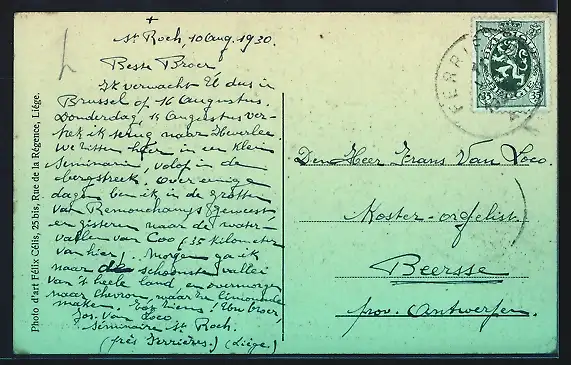 +
St Roch, 10 aug. 1930.
Beste Broer
Ik verwacht U dus in
Brussel op 16 Augustus.
Donderdag, 14 Augustus ver-
trek ik terug naar Heverlee.
We zitten hier in een klein
Seminarie, volop in de
bergstreek. Over eenige
dagen ben ik in de grotten
van Remouchamps geweest
en gisteren naar de water-
vallen van Coo (35 kilometer
van hier). Morgen ga ik
naar de schoonste vallei
van 't heele land, en overmorgen
naar Chevron, waar ze limonade
maken. Tot ziens! Uw broer,
Jos. Van Loco
Séminaire St Roch.
(près Ferrières.) (Liége)
Photo d'art Félix Célis, 25 bis, Rue de la Régence, Liége.
FERRIERES
35
Den Heer Frans Van Loco.
Koster-orgelist
Beersse
prov. Antwerpen.